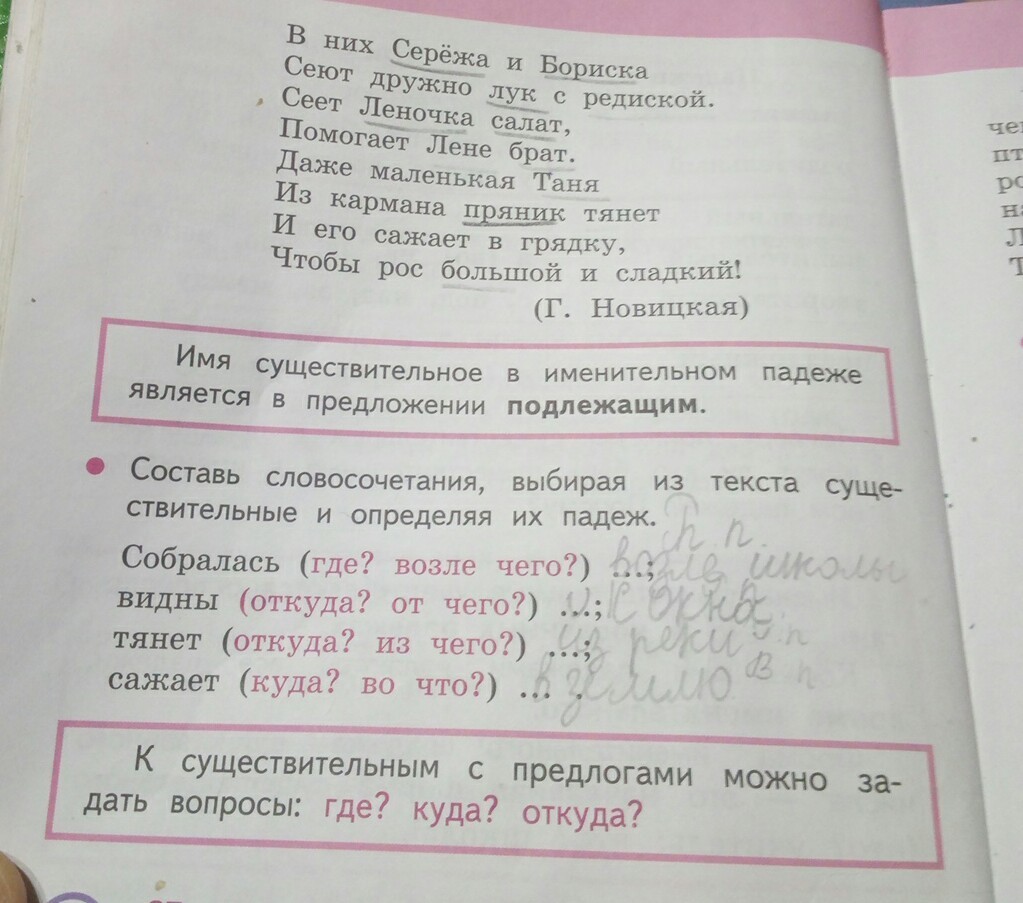 В них Серёжа и Бориска
Сеют дружно лук с редиской.
Сеет Леночка салат,
Помогает Лене брат.
Даже маленькая Таня
Из кармана пряник тянет
И его сажает в грядку,
Чтобы рос большой и сладкий!
(Г. Новицкая)
Имя существительное в именительном падеже
является в предложении подлежащим.
Составь словосочетания, выбирая из текста суще-
ствительные и определяя их падеж.
Собралась (где? возле чего?) ...; возле школы
видны (откуда? от чего?) ...; окна
тянет (откуда? из чего?) ...; из реки п
сажает (куда? во что?) ... . в землю В п
К существительным с предлогами можно за-
дать вопросы: где? куда? откуда?
че
пт
ро
на
Л
Т